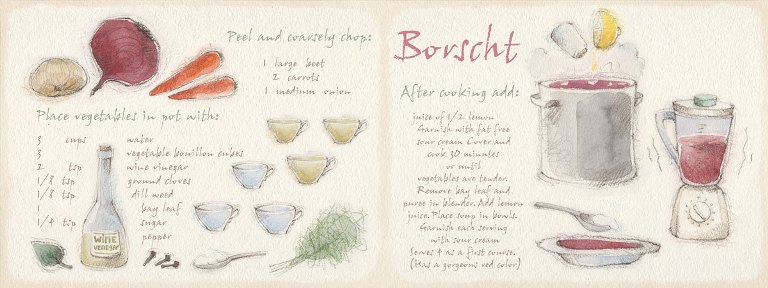 Peel and coarsely chop:
1 large beet
2 carrots
1 medium onion
Place vegetables in pot with:
3 cups water
3 vegetable bouillon cubes
2 tsp wine vinegar
1/8 tsp ground cloves
1/8 tsp dill weed
1 bay leaf
1/4 tsp sugar
pepper
WINE
VINEGAR
Borscht
After cooking add:
juice of 1/2 lemon
Garnish with fat free
sour cream Cover and
cook 30 minutes
or until
vegetables are tender.
Remove bay leaf and
puree in blender. Add lemon
juice. Place soup in bowls.
Garnish each serving
with sour cream
Serves 4 as a first course.
(Has a gorgeous red color)